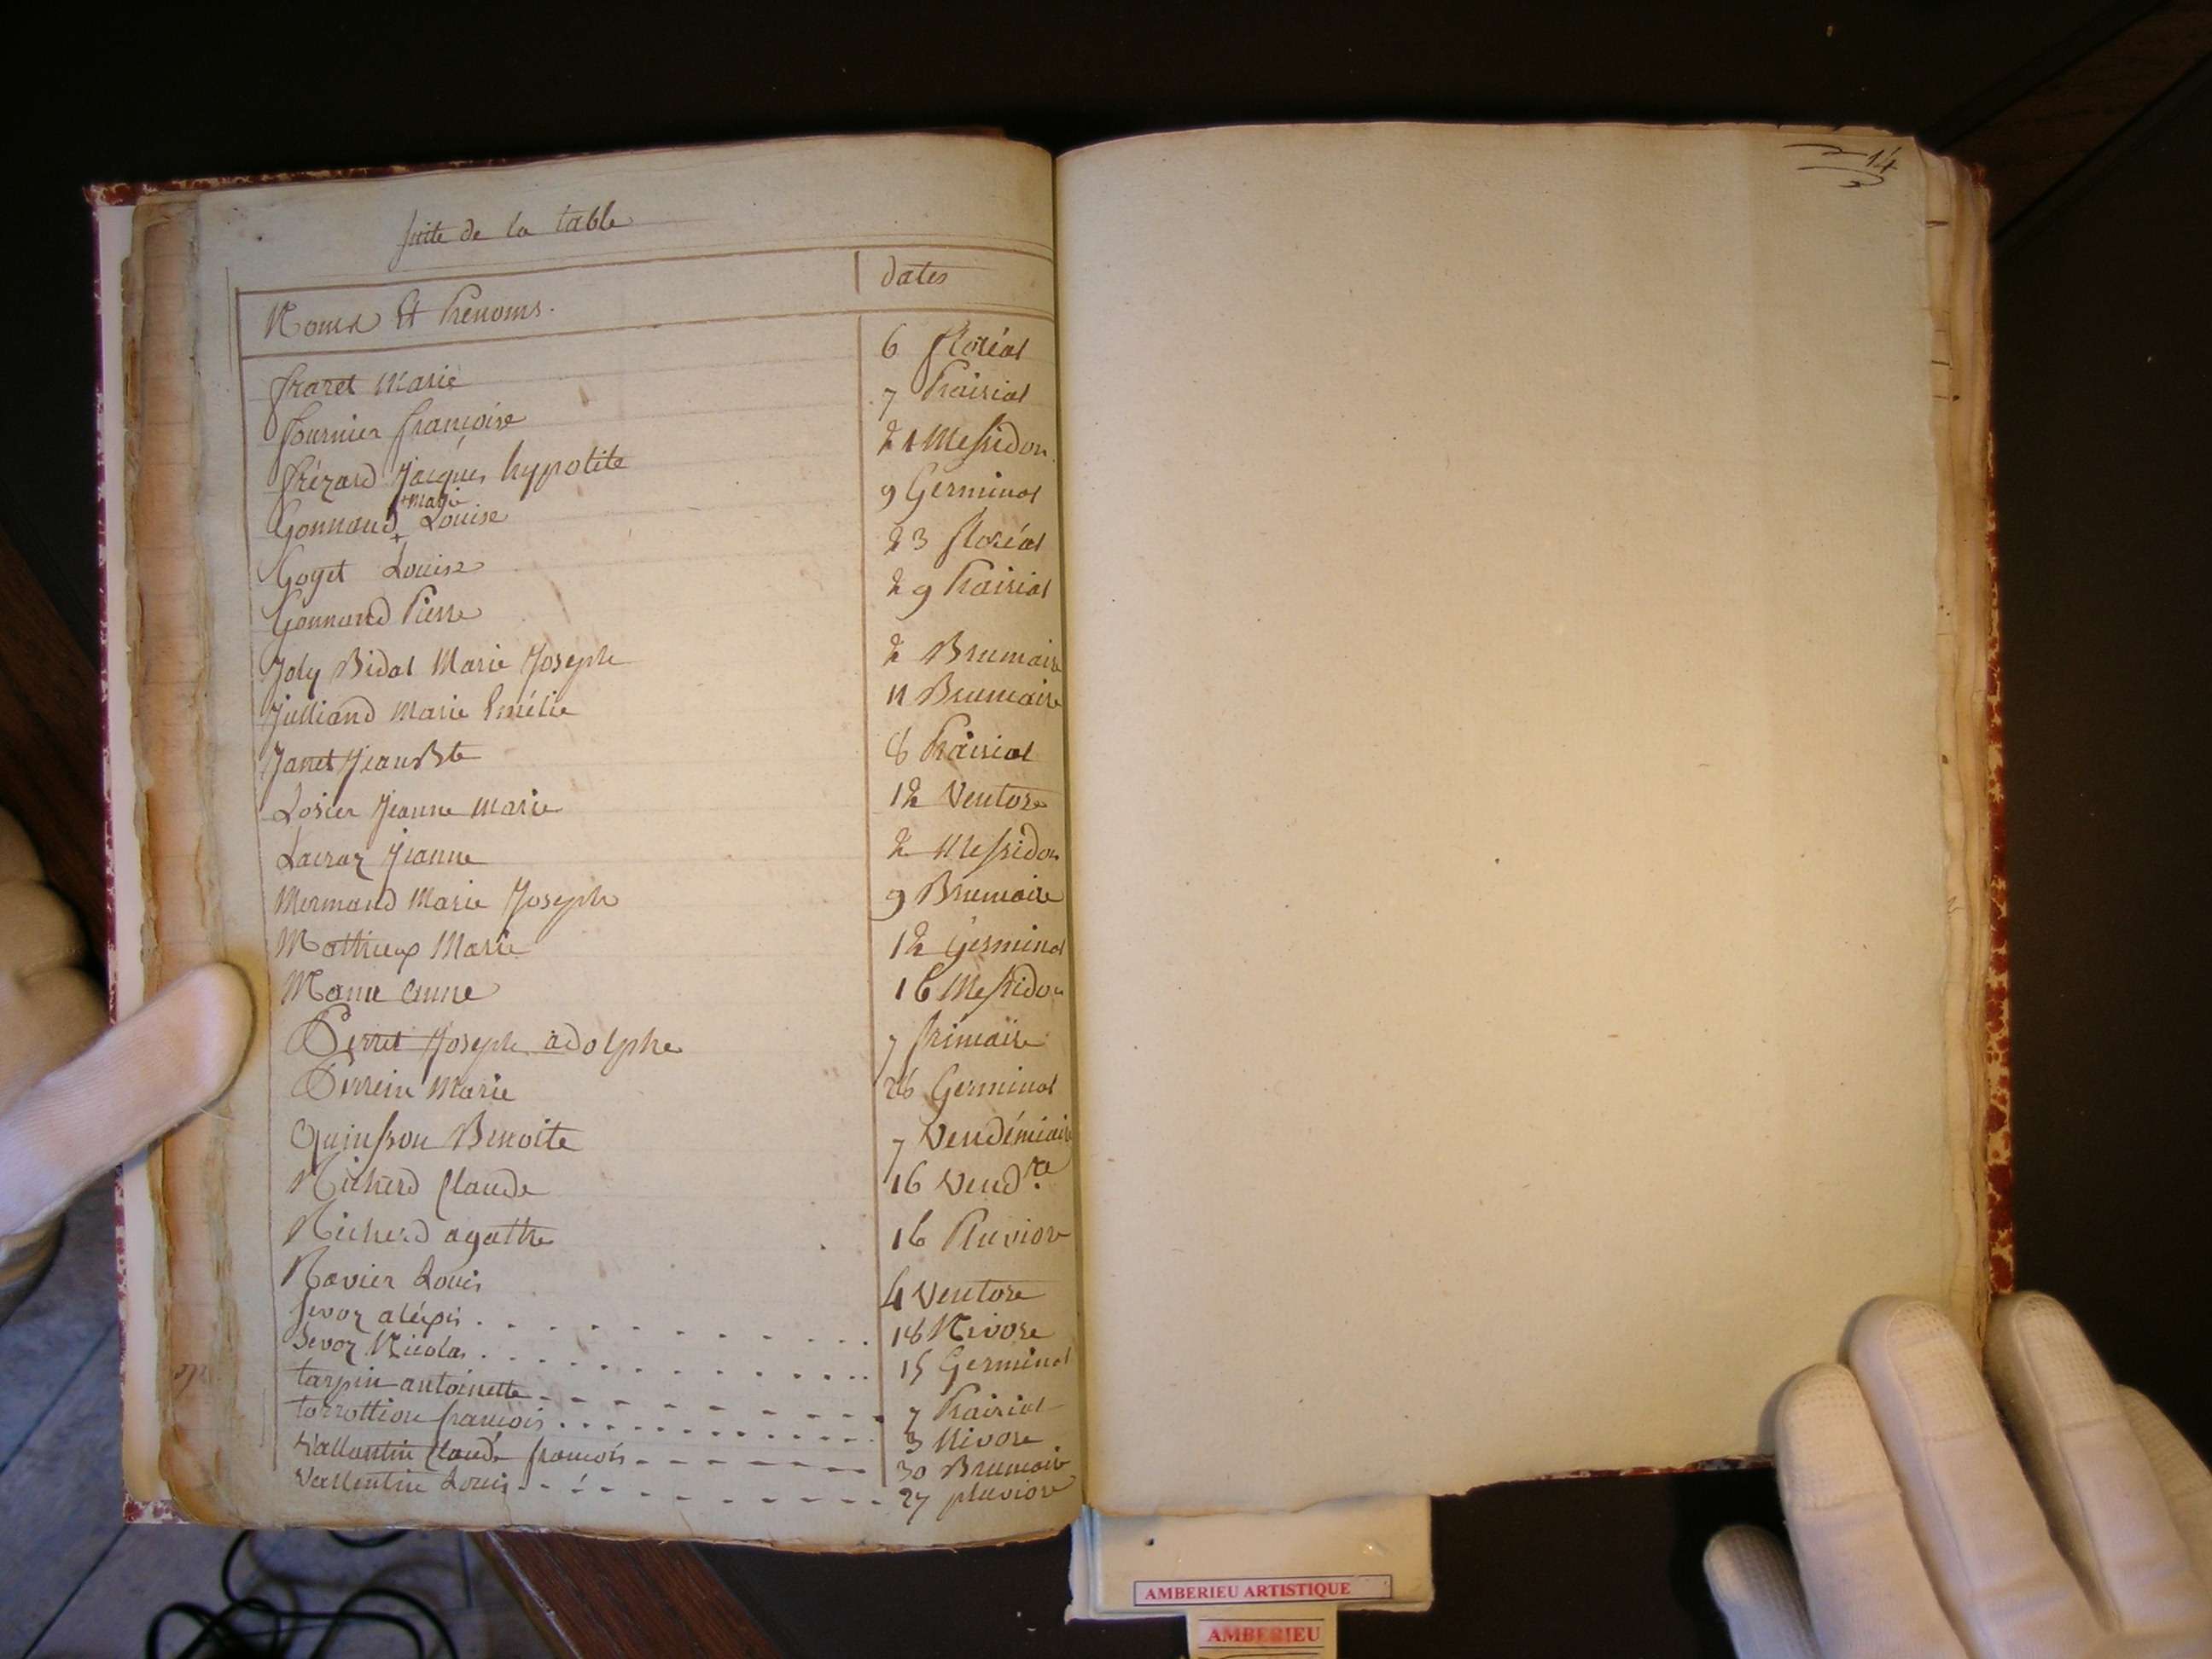 suite de la table
Noms Et Prénoms.
dates
fraret Marie 6 floréal
fournier françoise 7 Prairial
frézard Jacques hypolite 21 Messidor
Marie
Gonnand + Louise 9 Germinal
Goyet Louise 23 floréal
Gonnand Pierre 29 Prairial
Joly Bidal Marie Joseph 2 Brumaire
Julliand Marie Emélie 11 Brumaire
Janet Jean Bte 8 Prairial
Losier Jeanne Marie 12 Ventose
Lacraz Jeanne 2 Messidor
Mermand Marie Joseph 9 Brumaire
Mathieux Marie 12 Germinal
Marie anne 16 Messidor
Perret Joseph adolphe 7 frimaire
Perrein Marie 26 Germinal
Quinsson Benoite 7 Vendémiaire
Richerd Claude 16 Vend.re
Richerd agathe 16 Pluviose
Ravier Louis 4 Ventose
Sevoz aléxis 18 Nivose
Sevoz Nicolas 15 Germinal
tarpin antoinette 7 Prairial
torrottion françois 3 Nivose
Vallentin Claude françois 30 Brumaire
Vallentin Louis 27 pluviose
14
AMBERIEU ARTISTIQUE
AMBERIEU